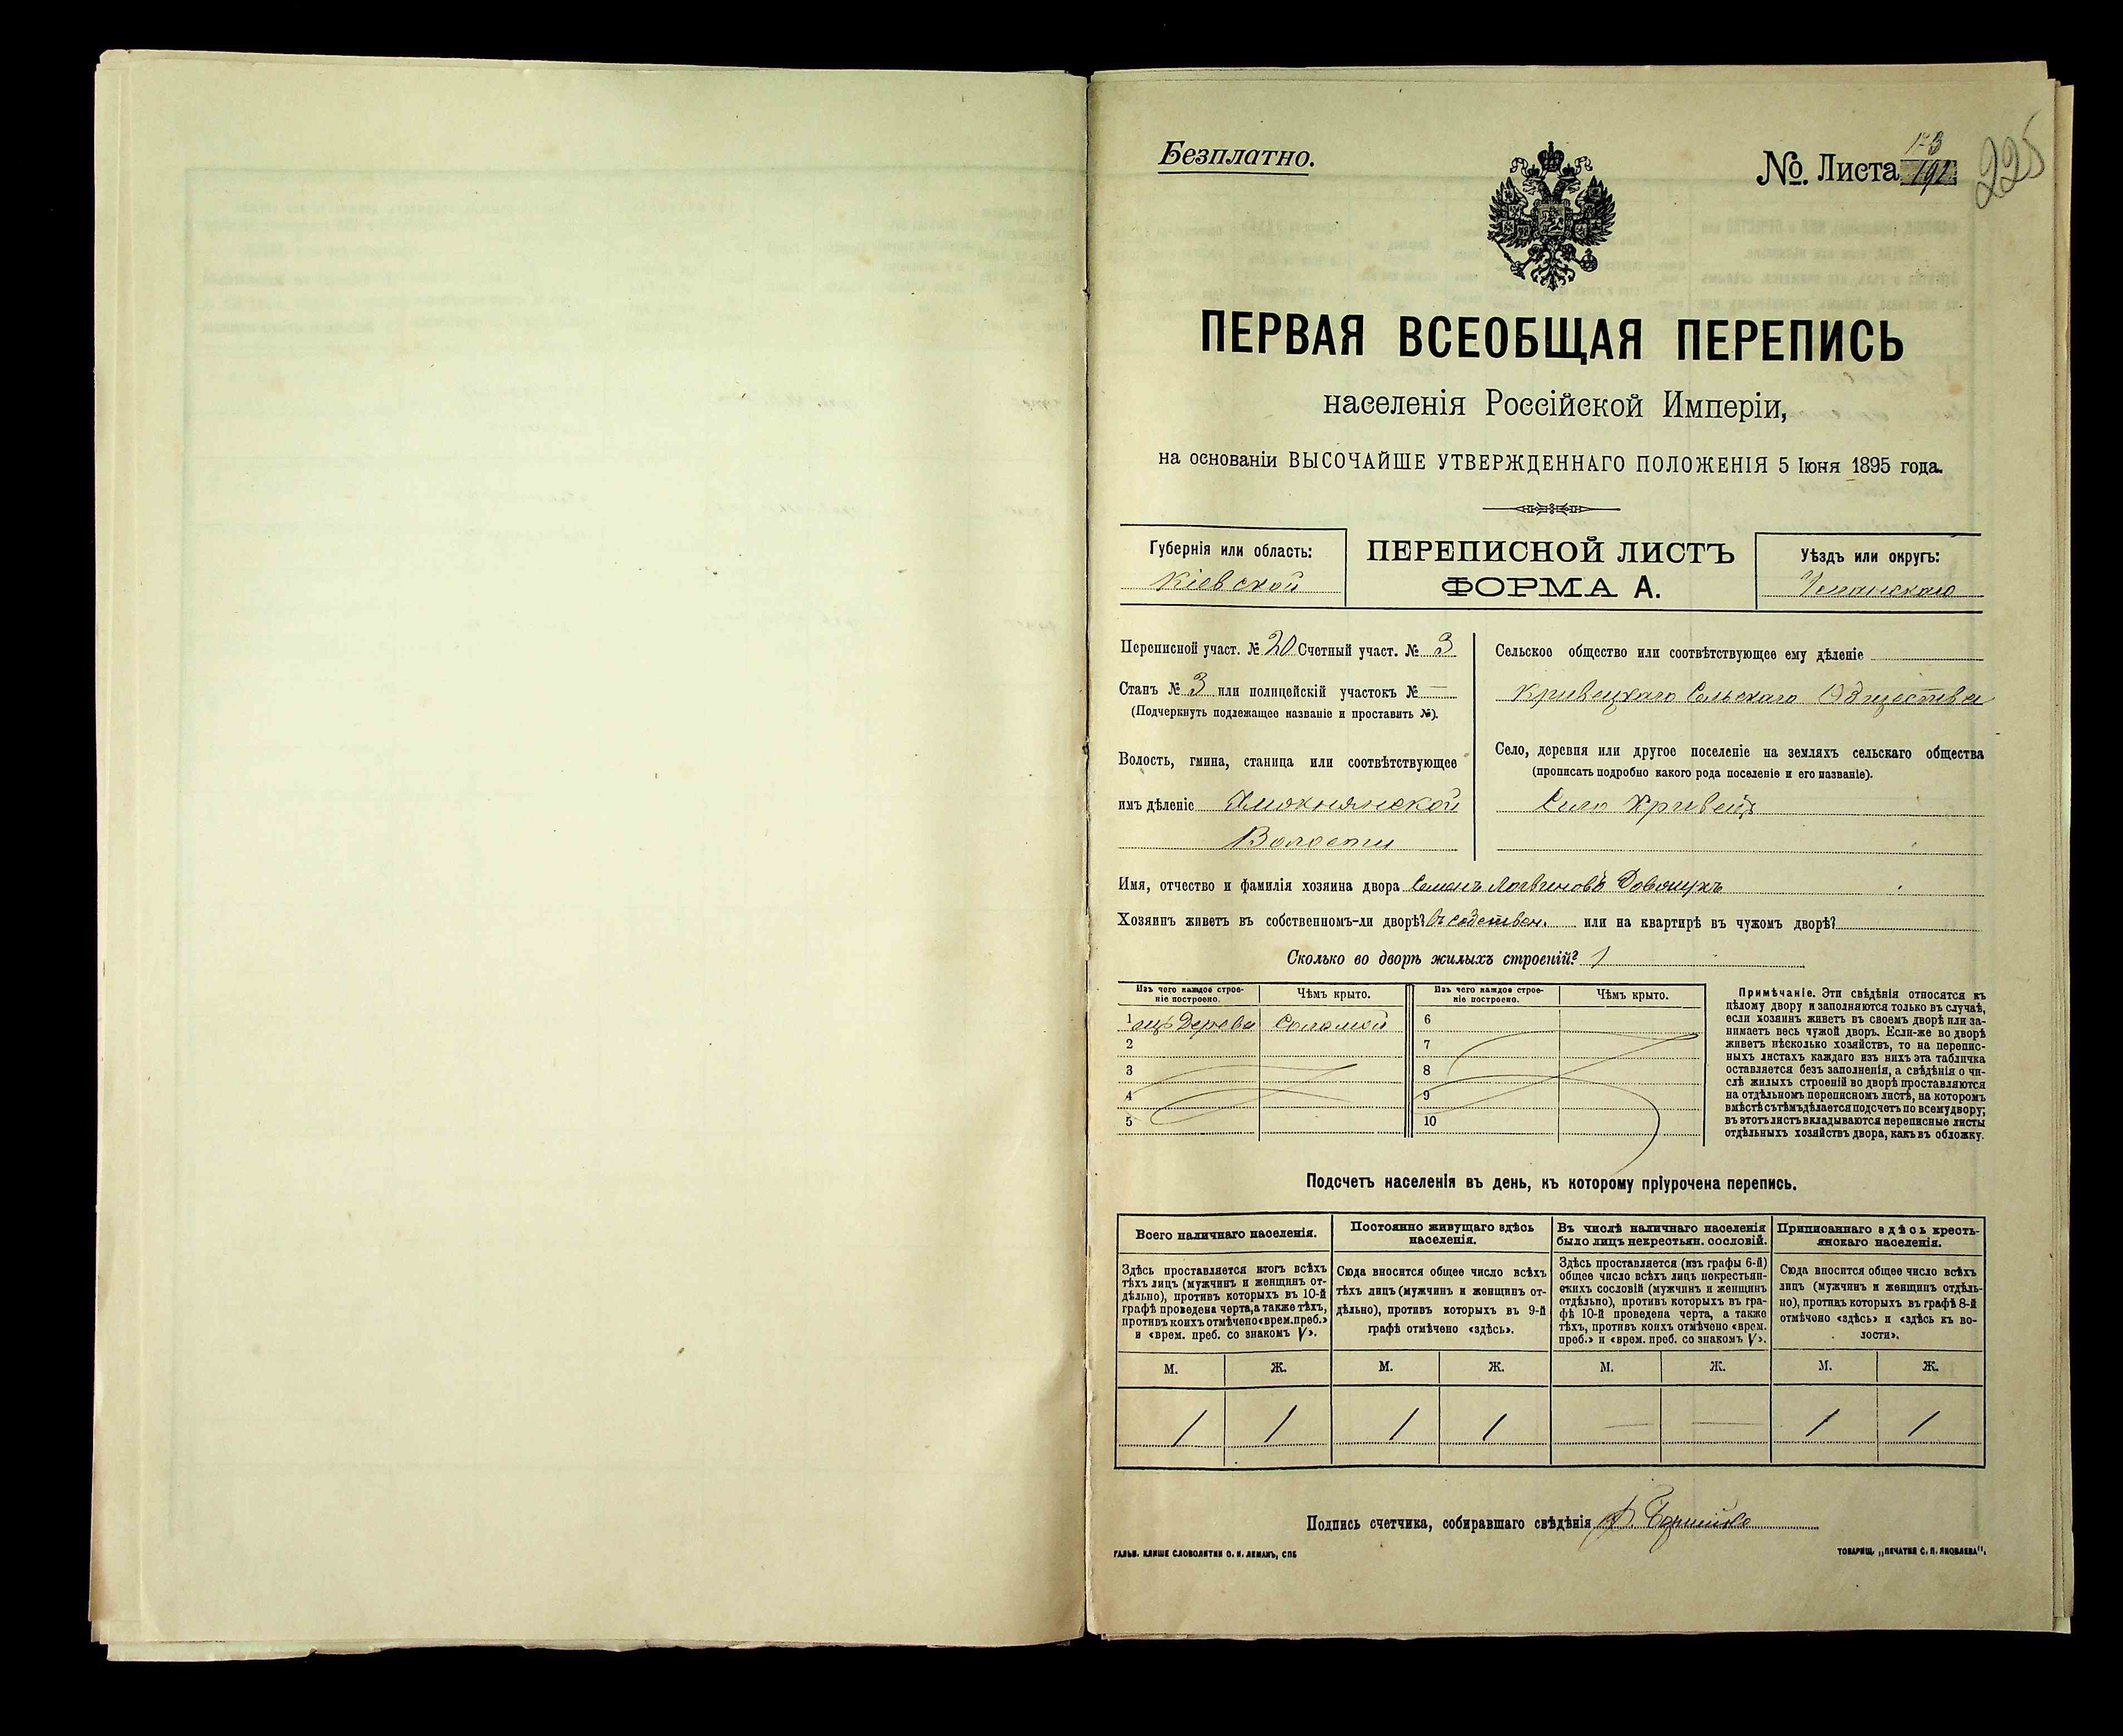 Безплатно.
№. Листа 173
192
225
ПЕРВАЯ ВСЕОБЩАЯ ПЕРЕПИСЬ
населенія Россійской Имперіи,
на основаніи ВЫСОЧАЙШЕ УТВЕРЖДЕННАГО ПОЛОЖЕНІЯ 5 Іюня 1895 года.
Губернія или область:
Кіевской
ПЕРЕПИСНОЙ ЛИСТЪ
ФОРМА А.
Уѣздъ или округъ:
Уманскаго
Переписной участ. № 20 Счетный участ. № 3
Станъ № 3 или полицейскій участокъ № —
(Подчеркнуть подлежащее названіе и проставить №).
Волость, гмина, станица или соотвѣтствующее
имъ дѣленіе
Волости
Сельское общество или соотвѣтствующее ему дѣленіе
Кривецкаго Сельскаго Общества
Село, деревня или другое поселеніе на земляхъ сельскаго общества
(прописать подробно какого рода поселеніе и его названіе).
Село Кривецъ
Имя, отчество и фамилія хозяина двора Семенъ Логвиновъ
Хозяинъ живетъ въ собственномъ-ли дворѣ? въ собствен. или на квартирѣ въ чужомъ дворѣ?
Сколько во дворѣ жилыхъ строеній? 1
Изъ чего каждое строе-
ніе построено.
Чѣмъ крыто.
Изъ чего каждое строе-
ніе построено.
Чѣмъ крыто.
1 изъ Дерева Соломой 6
2 7
3 8
4 9
5 10
Примѣчаніе. Эти свѣдѣнія относятся къ
цѣлому двору и заполняются только въ случаѣ,
если хозяинъ живетъ въ своемъ дворѣ или за-
нимаетъ весь чужой дворъ. Если-же во дворѣ
живетъ нѣсколько хозяйствъ, то на перепис-
ныхъ листахъ каждаго изъ нихъ эта табличка
оставляется безъ заполненія, а свѣдѣнія о чи-
слѣ жилыхъ строеній во дворѣ проставляются
на отдѣльномъ переписномъ листѣ, на которомъ
вмѣстѣ съ тѣмъ дѣлается подсчетъ по всему двору;
въ этотъ листъ вкладываются переписные листы
отдѣльныхъ хозяйствъ двора, какъ въ обложку.
Подсчетъ населенія въ день, къ которому пріурочена перепись.
Всего наличнаго населенія.
Здѣсь проставляется итогъ всѣхъ
тѣхъ лицъ (мужчинъ и женщинъ от-
дѣльно), противъ которыхъ въ 10-й
графѣ проведена черта, а также тѣхъ,
противъ коихъ отмѣчено «врем. преб.»
и «врем. преб. со знакомъ V».
Постоянно живущаго здѣсь
населенія.
Сюда вносится общее число всѣхъ
тѣхъ лицъ (мужчинъ и женщинъ от-
дѣльно), противъ которыхъ въ 9-й
графѣ отмѣчено «здѣсь».
Въ числѣ наличнаго населенія
было лицъ некрестьян. сословій.
Здѣсь проставляется (изъ графы 6-й)
общее число всѣхъ лицъ некрестьян-
скихъ сословій (мужчинъ и женщинъ
отдѣльно), противъ которыхъ въ гра-
фѣ 10-й проведена черта, а также
тѣхъ, противъ коихъ отмѣчено «врем.
преб.» и «врем. преб. со знакомъ V».
Приписаннаго здѣсь кресть-
янскаго населенія.
Сюда вносится общее число всѣхъ
лицъ (мужчинъ и женщинъ отдѣль-
но), противъ которыхъ въ графѣ 8-й
отмѣчено «здѣсь» и «здѣсь къ во-
лости».
М. Ж. М. Ж. М. Ж. М. Ж.
1 1 1 1 — — 1 1
Подпись счетчика, собиравшаго свѣдѣнія
ГАЛЬВ. КЛИШЕ СЛОВОЛИТНИ О. И. ЛЕМАНЪ, СПБ
ТОВАРИЩ. „ПЕЧАТНЯ С. П. ЯКОВЛЕВА".